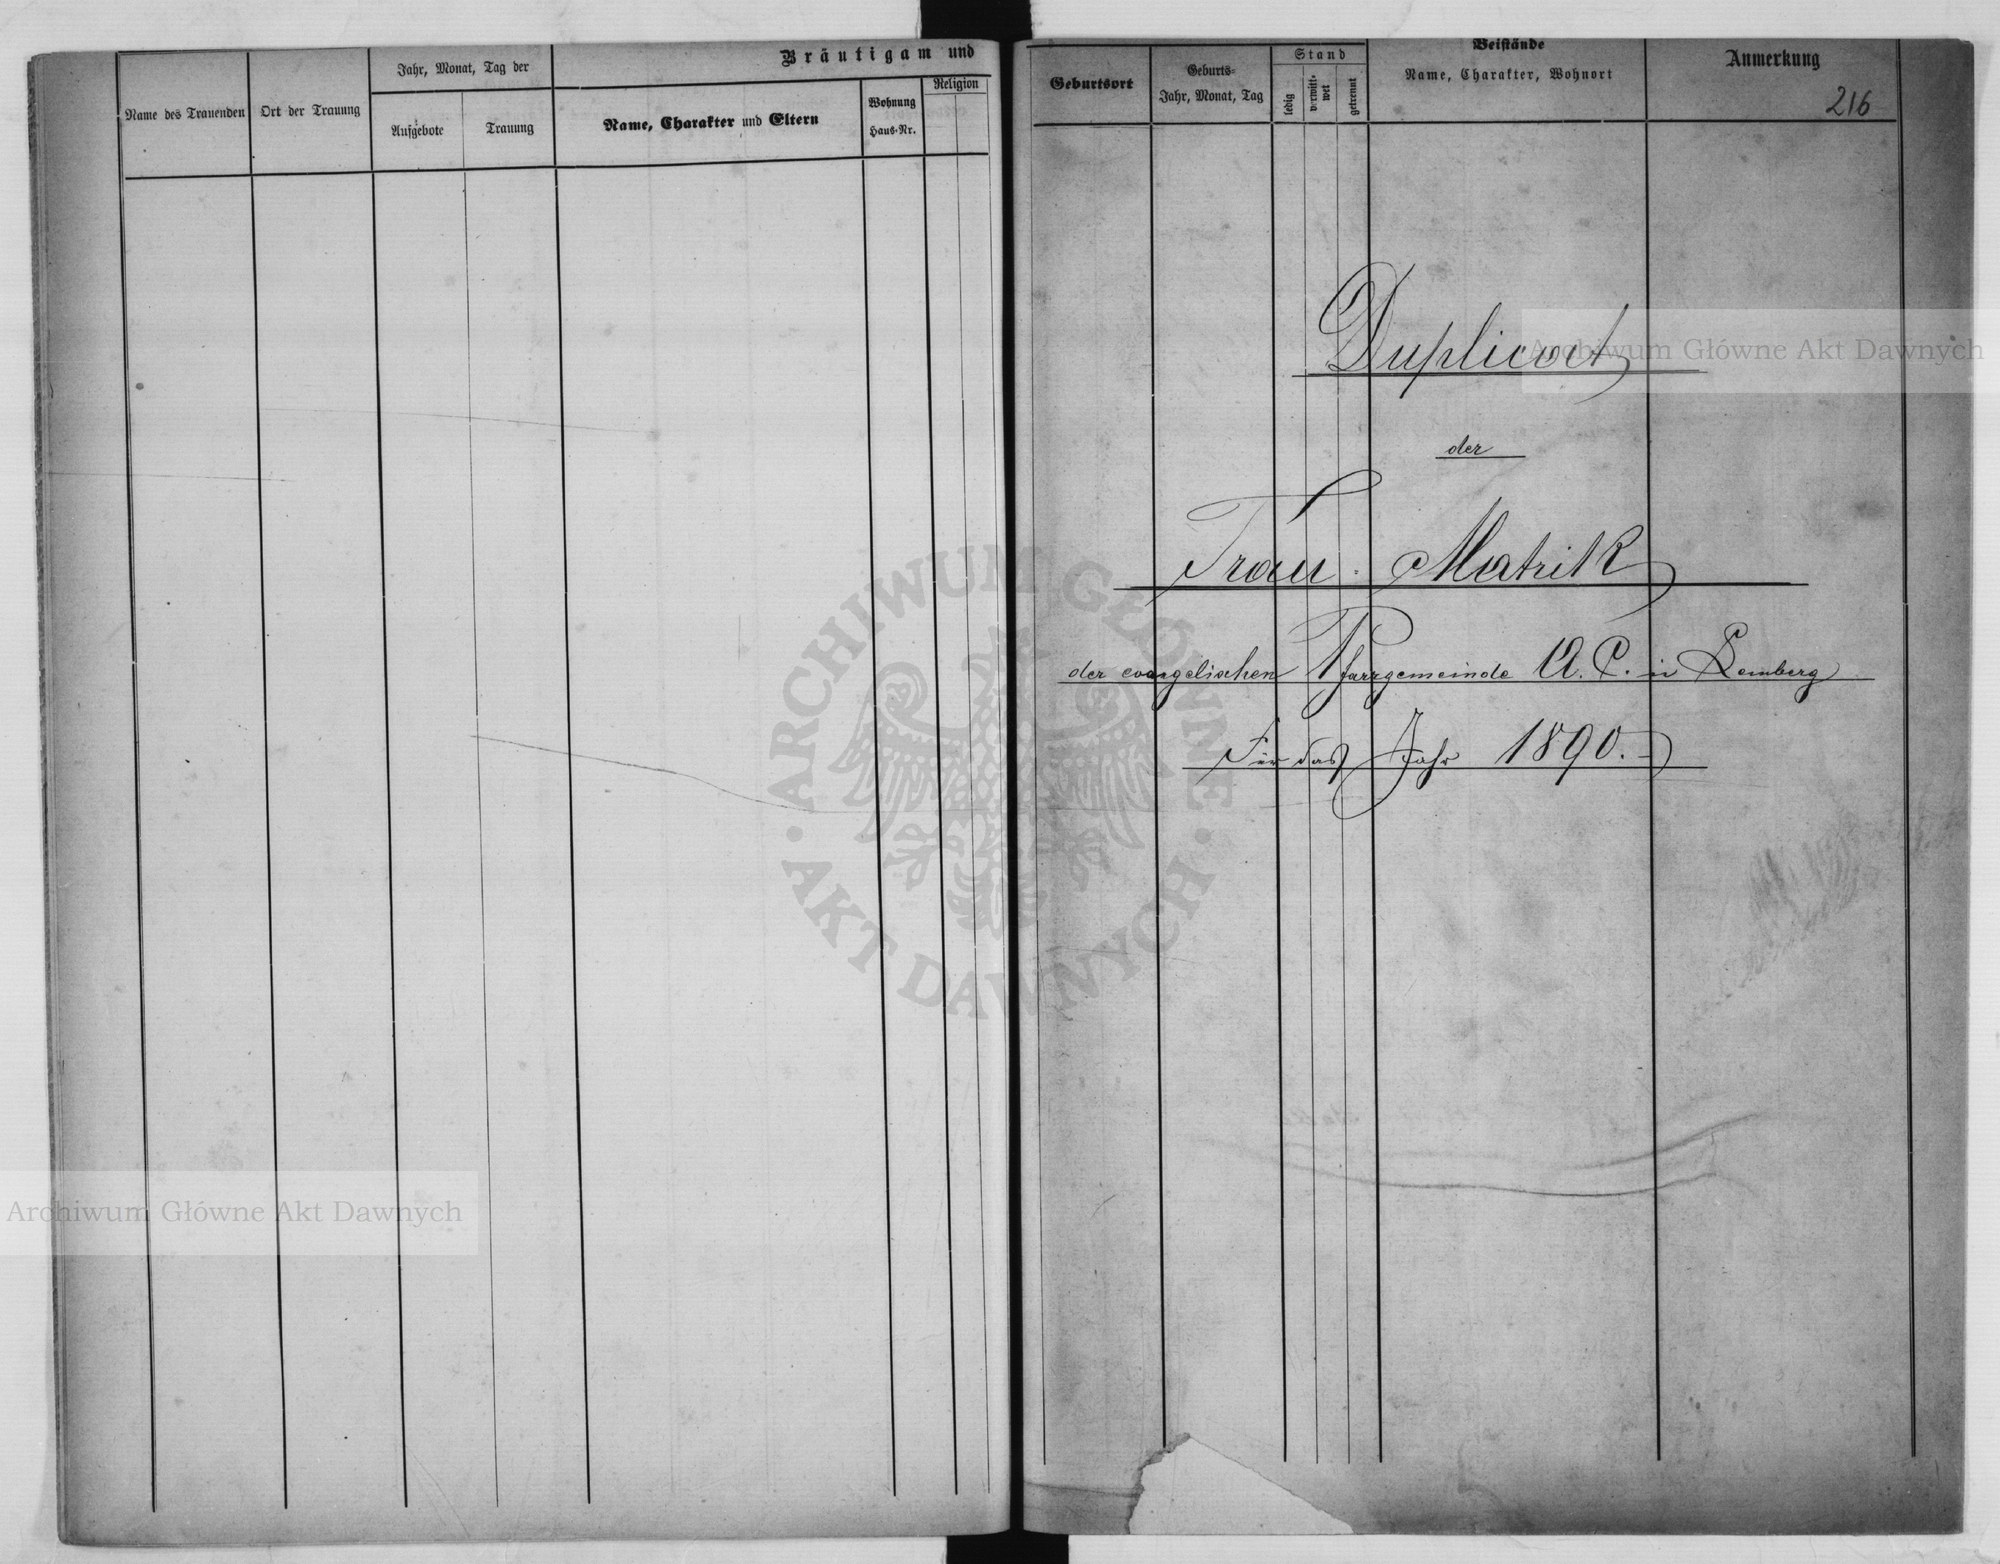 Bräutigam und
Name des Trauenden
Ort der Trauung
Jahr, Monat, Tag der
Aufgebote
Trauung
Name, Charakter und Eltern
Wohnung
Haus-Nr.
Religion
Geburtsort
Geburts-
Jahr, Monat, Tag
Stand
ledig
verwitt-
wet
getrennt
Beistände
Name, Charakter, Wohnort
Anmerkung
216
Duplicat
der
Trau-Matrik
der evangelischen Pfarrgemeinde A. C. in Lemberg
Für das Jahr 1890.
Archiwum Główne Akt Dawnych
ARCHIWUM GŁÓWNE
AKT DAWNYCH
Archiwum Główne Akt Dawnych